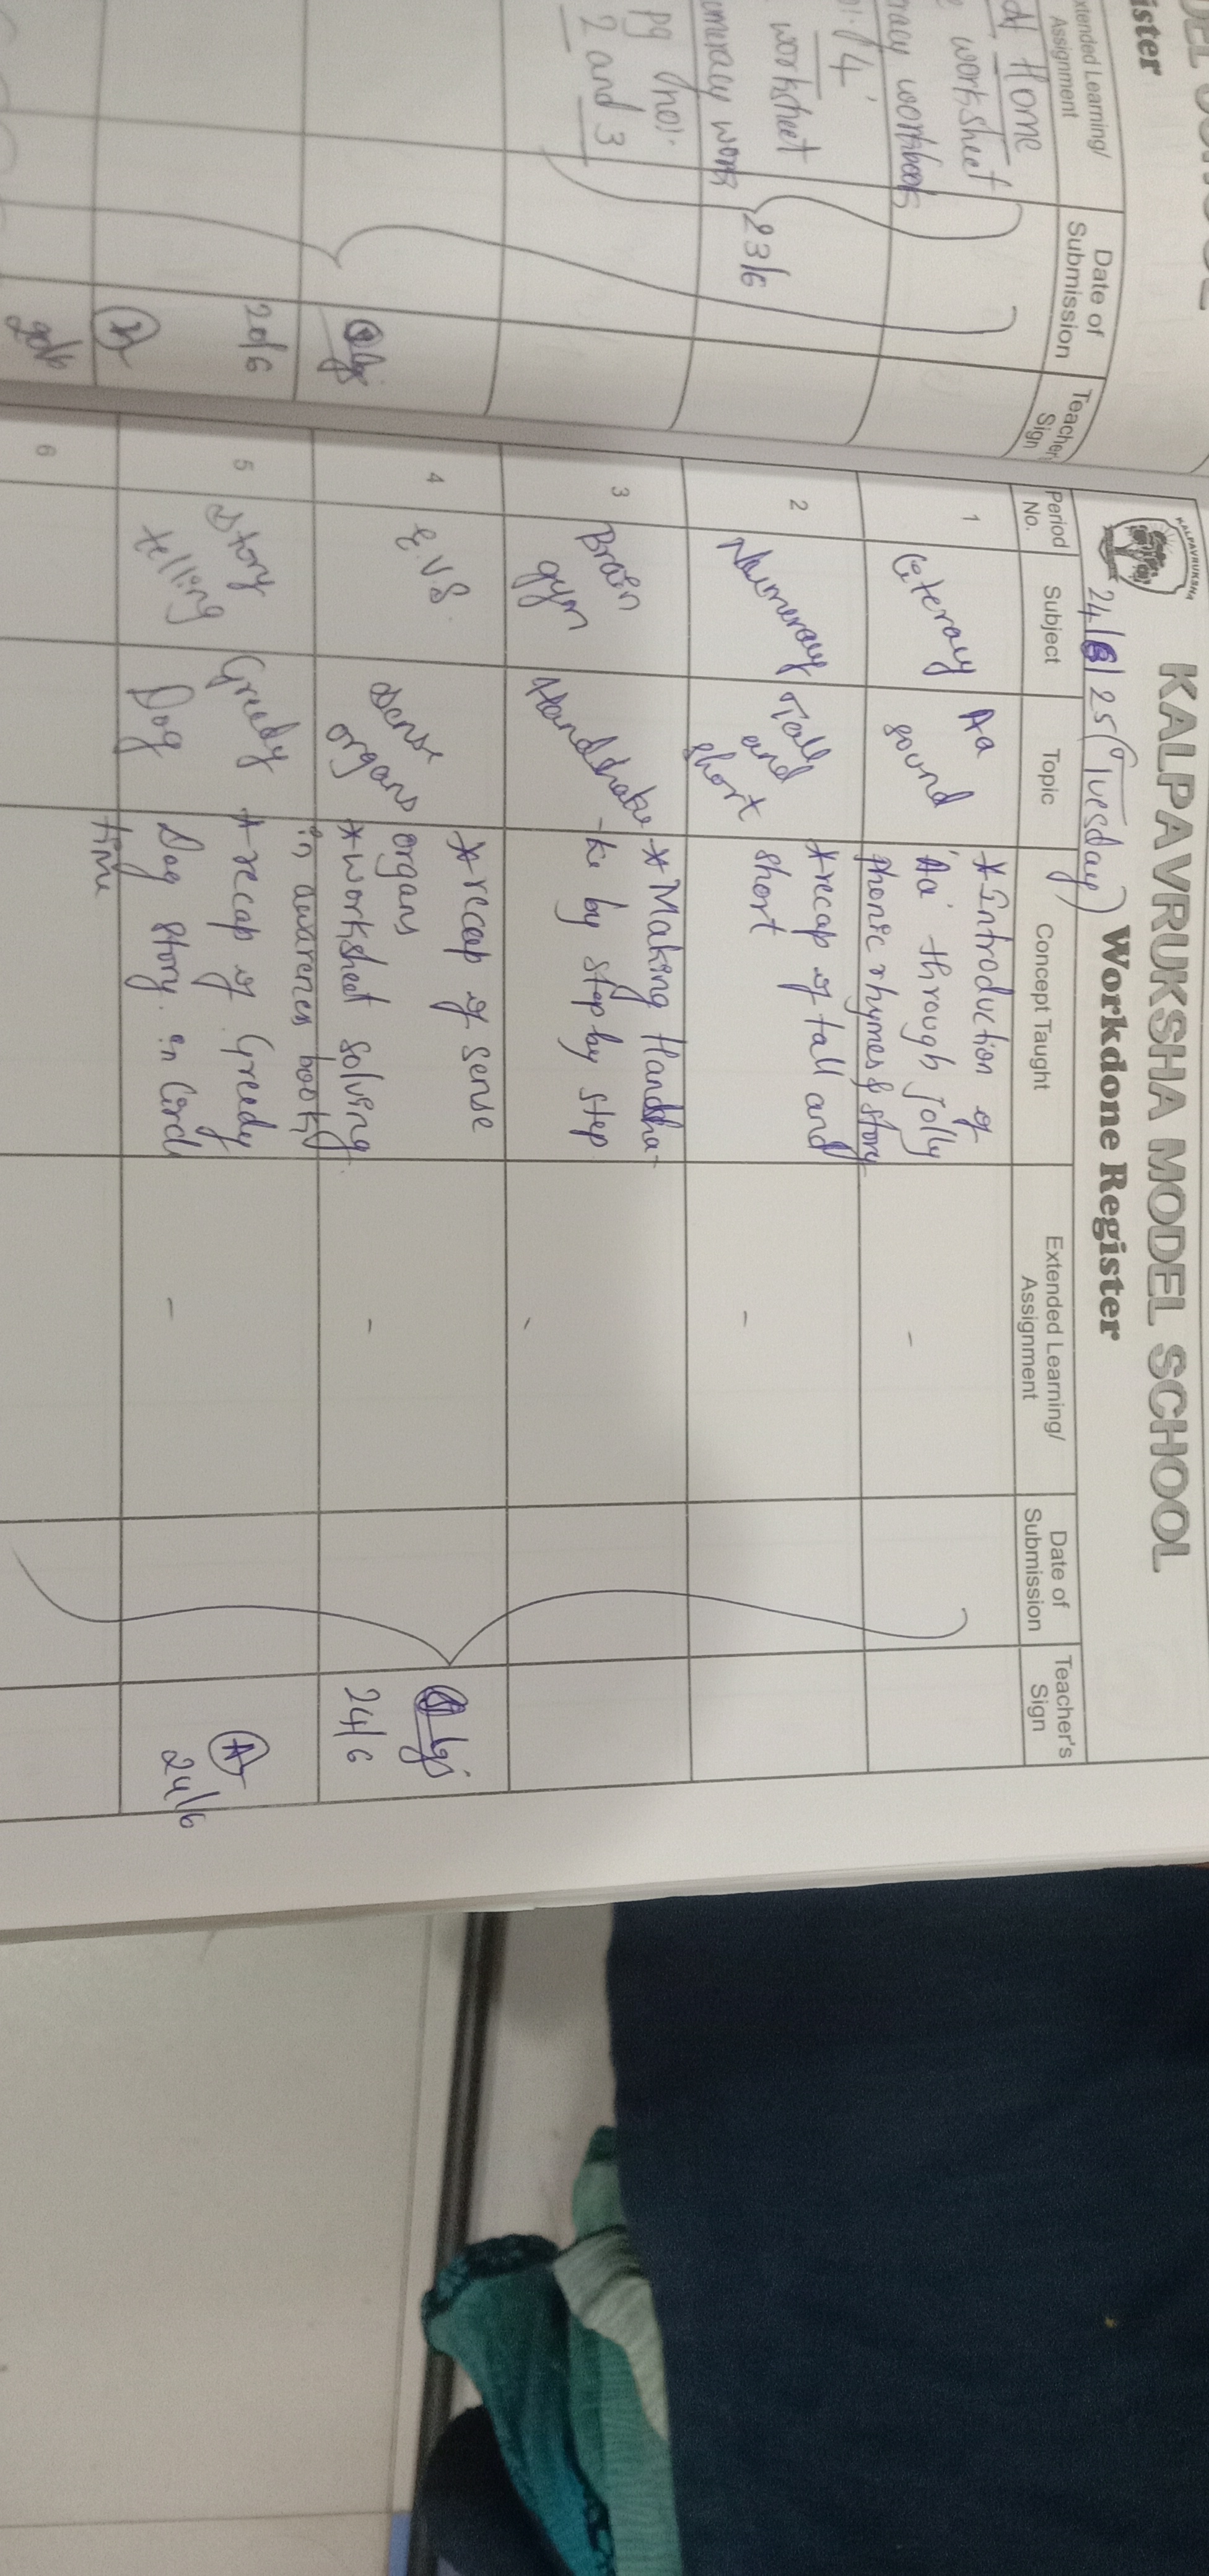 ister
Extended Learning/
Assignment
Date of
Submission
Teacher
Sign
Home
worksheet
workbook
worksheet
pg no:-
2 and 3
23/6
20/6
KALPAVRUKSHA
KALPAVRUKSHA MODEL SCHOOL
24/6/25 (Tuesday) Workdone Register
Period
No.
Subject
Topic
Concept Taught
Extended Learning/
Assignment
Date of
Submission
Teacher's
Sign
1
Literacy
Aa
sound
*Introduction of
'Aa' through Jolly
phonic rhymes & story
-
2
Numeracy
Tall
and
short
*recap of tall and
short
-
3
Brain
gym
Handshake
*Making Handsha-
-ke by step by step
-
4
E.V.S.
Sense
organs
*recap of sense
organs
*worksheet solving
in awarenes book
-
24/6
5
Story
telling
Greedy
Dog
*recap of Greedy
Dog story in Circle
time
-
24/6
6